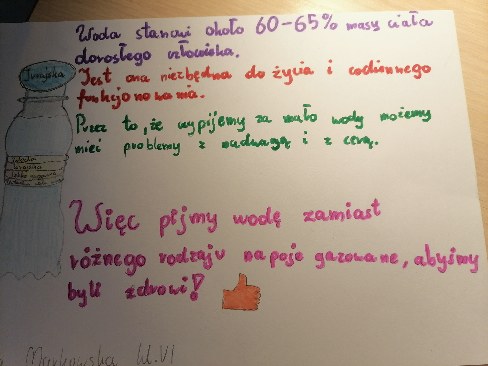 Woda stanowi około 60-65% masy ciała
dorosłego człowieka.
Jest ona niezbędna do życia i codziennego
funkcjonowania.
Przez to, że wypijemy za mało wody możemy
mieć problemy z nadwagą i z cerą.
Więc pijmy wodę zamiast
różnego rodzaju napoje gazowane, abyśmy
byli zdrowi!
Markowska kl. VI